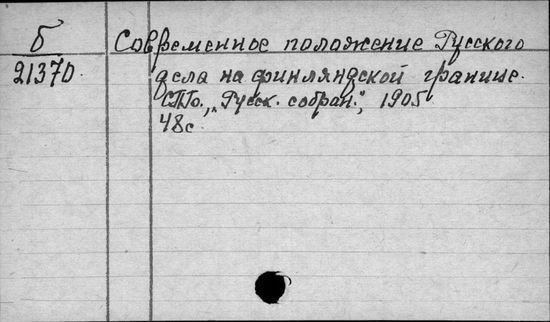 Б
21370.
Современное положение Русского
дела на финляндской границе.
СПб., "Русск. собран.", 1905
48с.